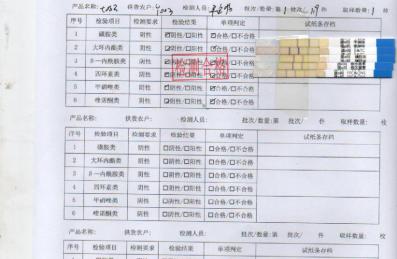 产品名称: 供货农户: 4003 检测人员: 批次/数量:第 1 批次/ 件 取样数量: 1 枚
序号 检验项目 检测要求 检验结果 单项判定 试纸条存档
1 磺胺类 阴性 ☑阴性/□阳性 ☑合格/□不合格
2 大环内酯类 阴性 ☑阴性/□阳性 ☑合格/□不合格
3 β一内酰胺类 阴性 ☑阴性/□阳性 ☑合格/□不合格
4 四环素类 阴性 ☑阴性/□阳性 ☑合格/□不合格
5 甲硝唑类 阴性 ☑阴性/□阳性 ☑合格/□不合格
6 喹诺酮类 阴性 ☑阴性/□阳性 ☑合格/□不合格
检测合格
产品名称: 供货农户: 检测人员: 批次/数量:第 批次/ 件 取样数量: 枚
序号 检验项目 检测要求 检验结果 单项判定 试纸条存档
1 磺胺类 阴性 □阴性/□阳性 □合格/□不合格
2 大环内酯类 阴性 □阴性/□阳性 □合格/□不合格
3 β一内酰胺类 阴性 □阴性/□阳性 □合格/□不合格
4 四环素类 阴性 □阴性/□阳性 □合格/□不合格
5 甲硝唑类 阴性 □阴性/□阳性 □合格/□不合格
6 喹诺酮类 阴性 □阴性/□阳性 □合格/□不合格
产品名称: 供货农户: 检测人员: 批次/数量:第 批次/ 件 取样数量: 枚
序号 检验项目 检测要求 检验结果 单项判定 试纸条存档